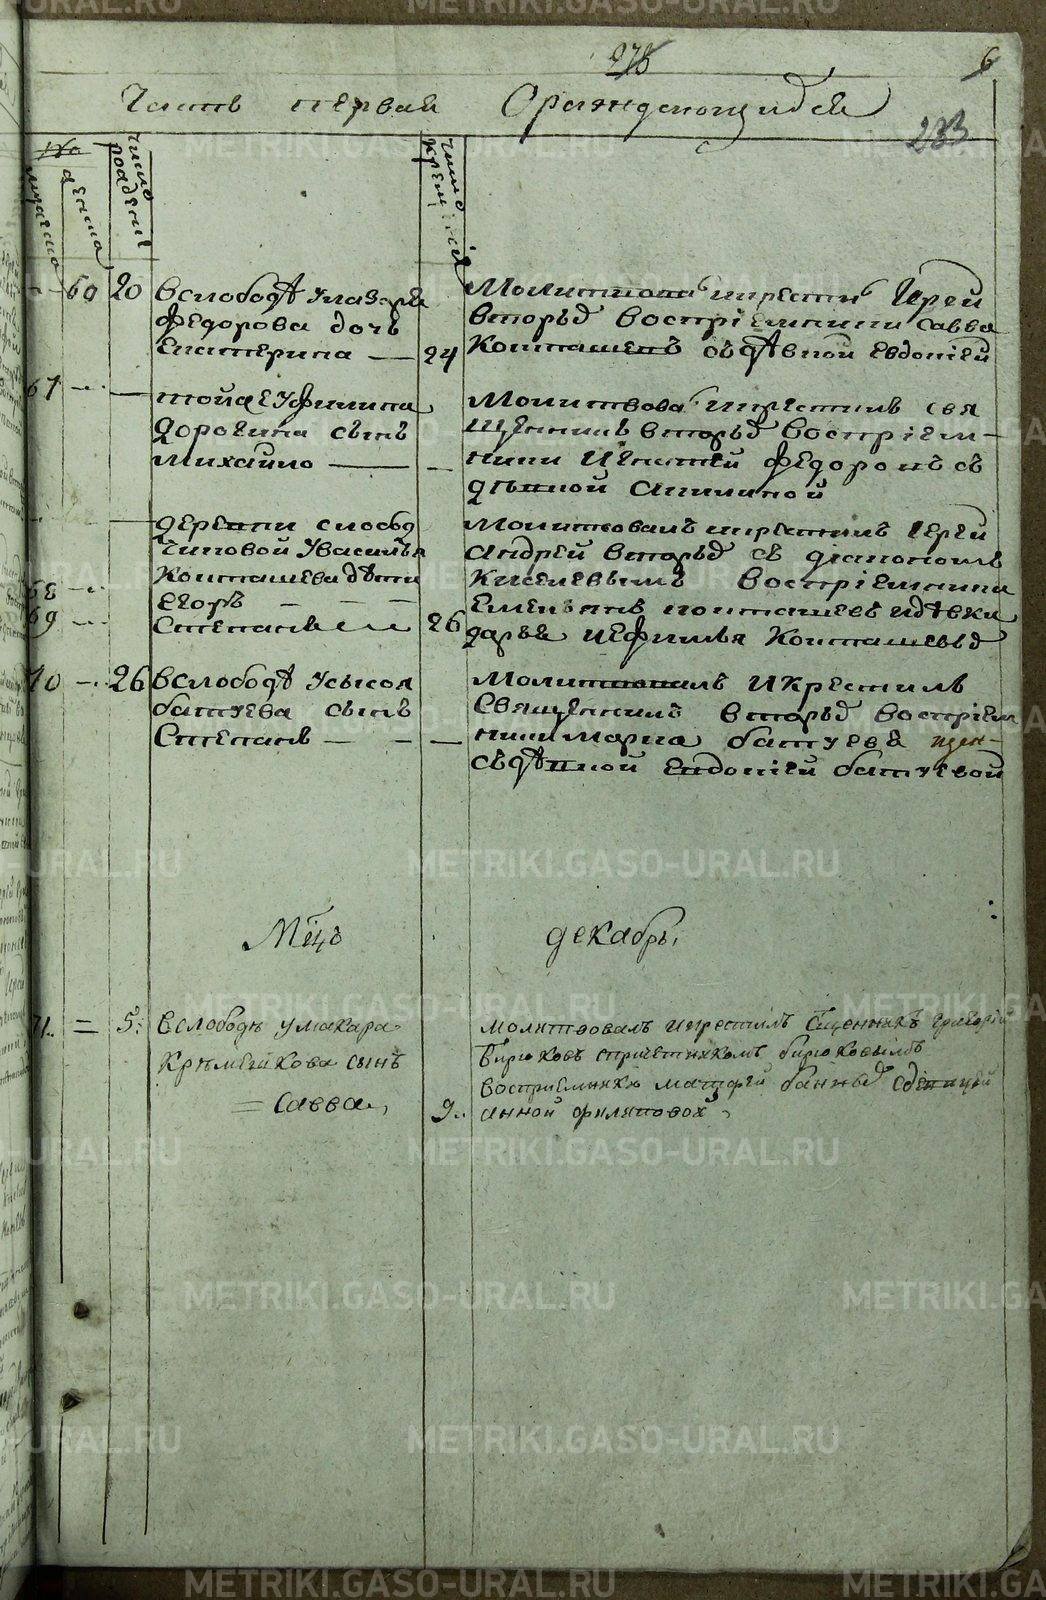 METRIKI.GASO-URAL.RU
278
6
Часть первая Ораждающихся
233
No
мужеска
женска
число рождениi
число крещениi
60 20 Вслободѣ Улазаря
Федорова дочь
Екатерина — 24
Молитвовалъ икрестилъ Иереи
вторыд Восприемники Савва
Кокшаșевъ сдѣвкой Евдокieй
67 — тойже Уфилипа
Дорогина сынъ
Михайло —
Молитвовалъ икрестилъ свя
щенникъ вторыд Восприем-
ники Игнатей Федоровъ съ
дѣвкой Акилиной
— деревни слобод
Чиповой Увасилья
Кокшашева дѣти
68 Егоръ — — —
69 Степанъ 26
Молитвовалъ икрестилъ Иерей
Андрей вторыд съ диакономъ
Киселевымъ Восприемники
Емельянъ Кокшашевъ идѣвки
дарья иефимья Кокшашевы
70 — 26 Вслободѣ Усысоя
батуева сынъ
Степанъ — — —
Молитвовалъ Икрестилъ
Священникъ вторыд восприем
ники Марка батуевъ
Сдѣвкой Евдокieй батуевой
Мцъ декабрь,
71. = 5. Вслободѣ умакара
Крѣмешкова сынъ
= Савва, 9..
молитвовалъ икрестилъ Сщенникъ григорiй
Бирюковъ спричетникомъ бирюковымъ
восприемникъ матфей банныд сдевицей
анной филиповой